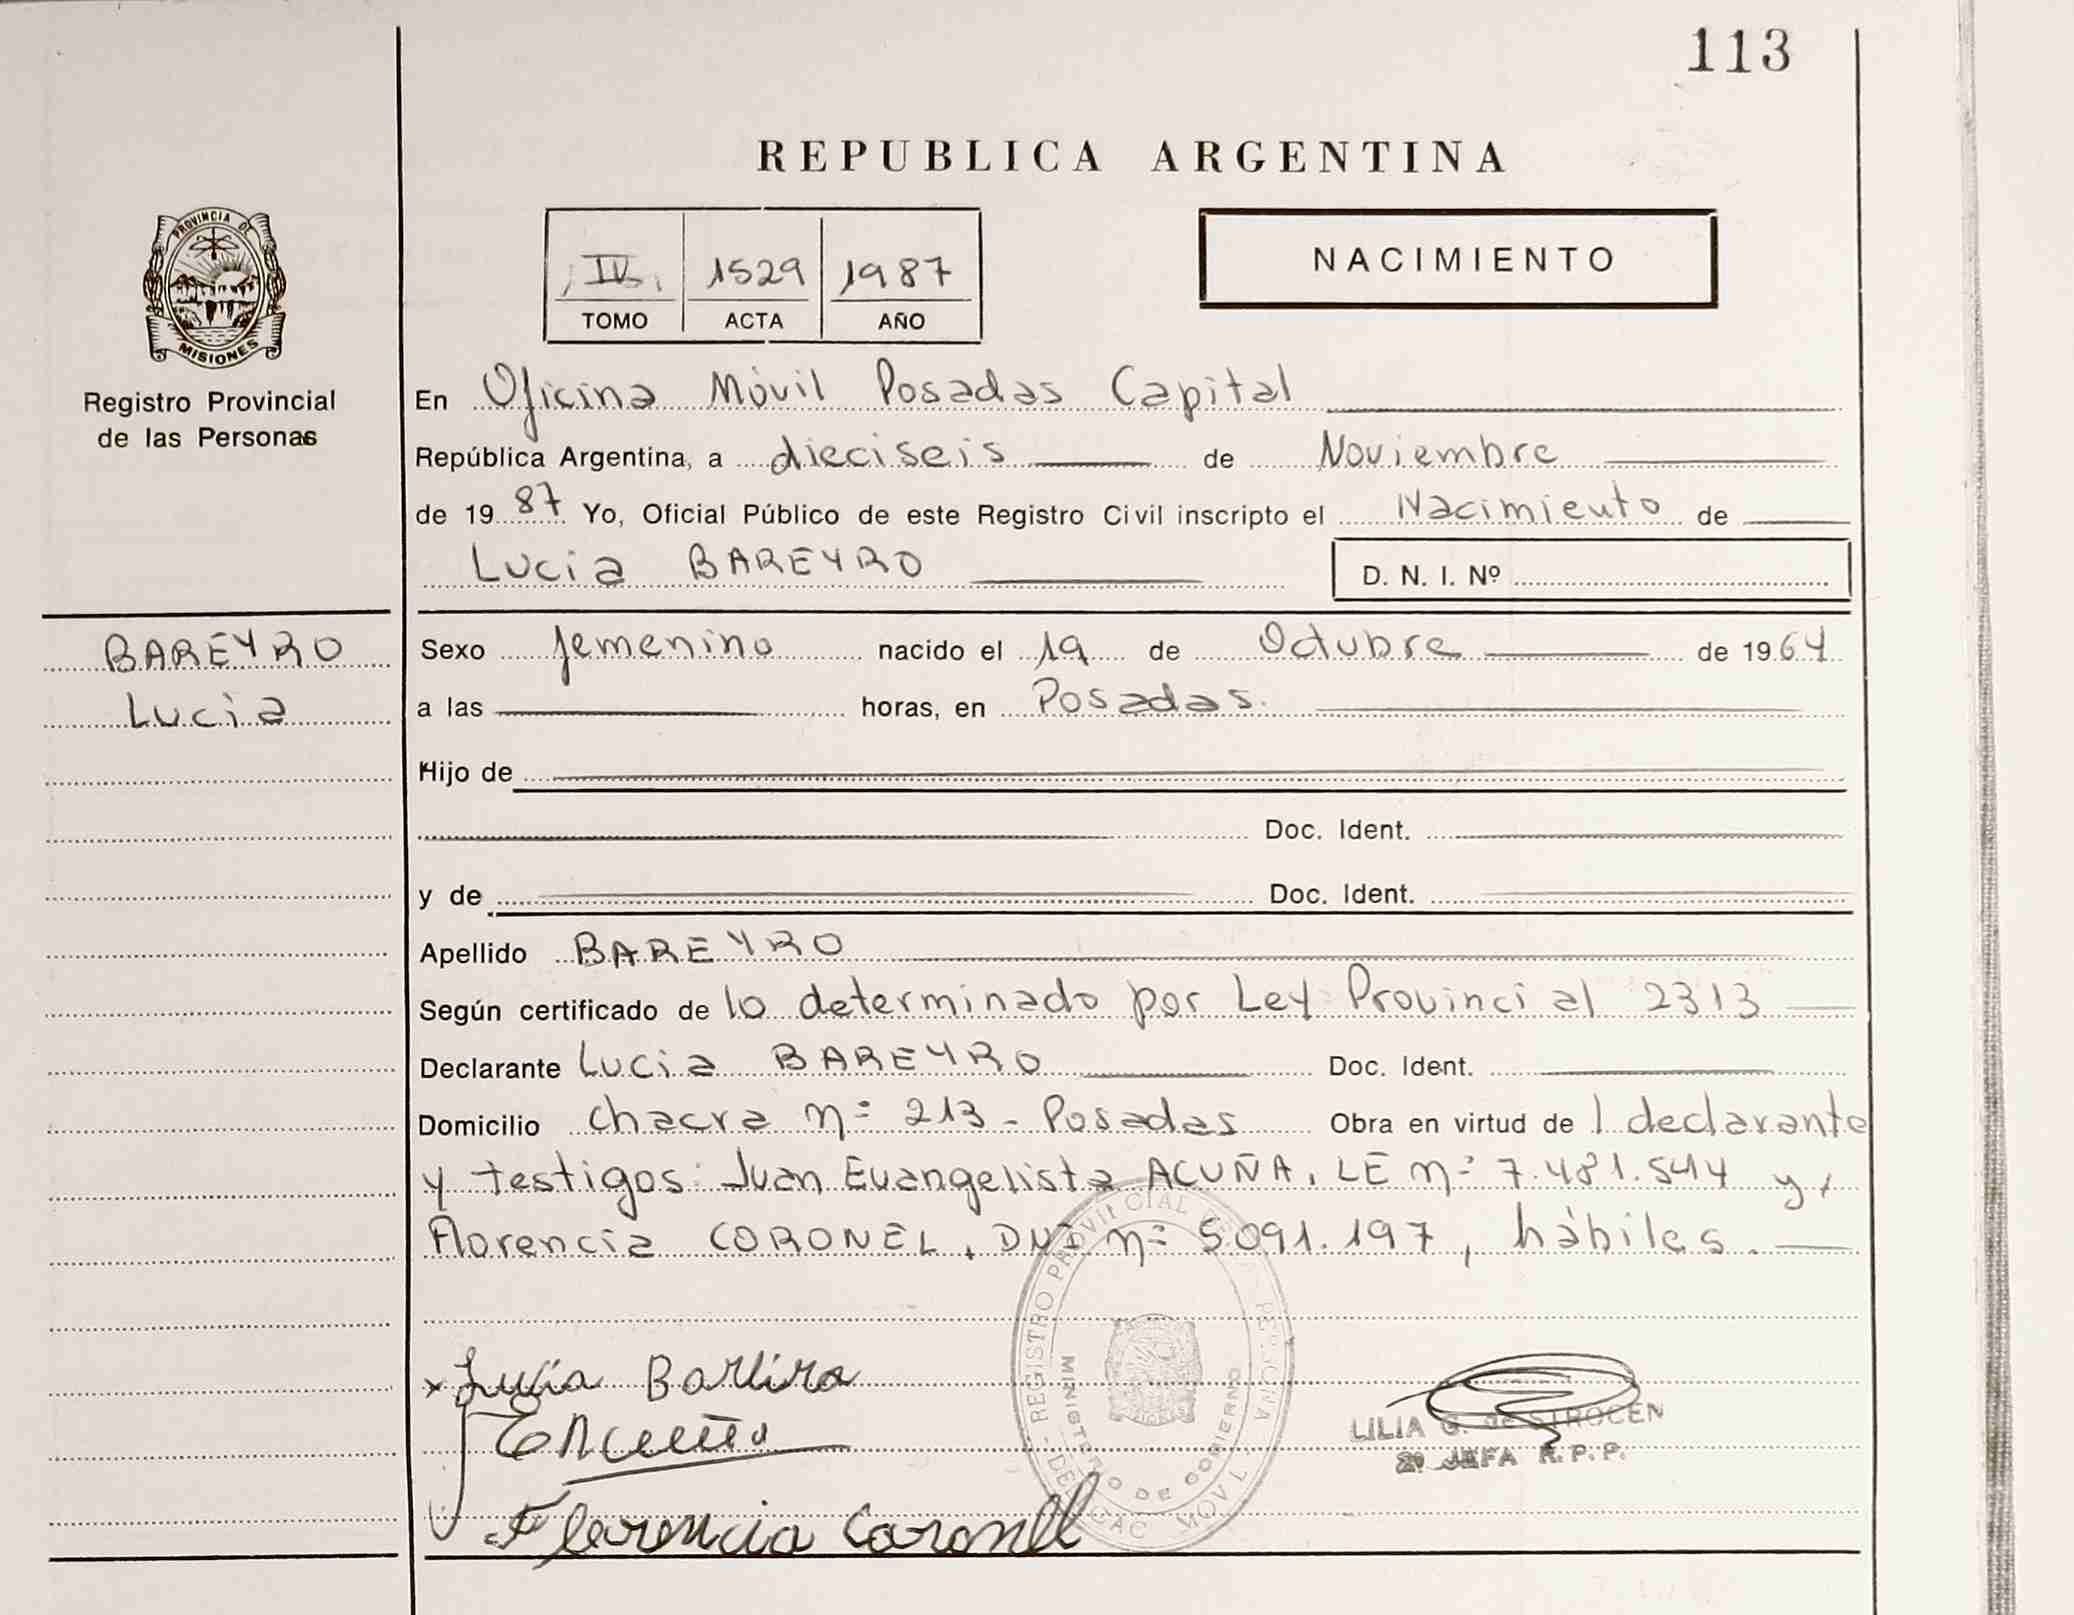 113
REPUBLICA ARGENTINA
IV 1529 1987
TOMO ACTA AÑO
NACIMIENTO
PROVINCIA DE MISIONES
Registro Provincial
de las Personas
En Oficina Móvil Posadas Capital
República Argentina, a dieciseis de Noviembre
de 1987 Yo, Oficial Público de este Registro Civil inscripto el Nacimiento de
Lucia BAREYRO D. N. I. Nº
BAREYRO
Lucia
Sexo femenino nacido el 19 de Octubre de 1964
a las horas, en Posadas.
Hijo de
Doc. Ident.
y de Doc. Ident.
Apellido BAREYRO
Según certificado de lo determinado por Ley Provincial 2313
Declarante Lucia BAREYRO Doc. Ident.
Domicilio chacra n= 213 - Posadas Obra en virtud de l declarante
y testigos: Juan Evangelista ACUÑA, LE n= 7.481.544 y
Florencia CORONEL, DNI n= 5.091.197, hábiles.
REGISTRO PROVINCIAL
MINISTERIO DE GOBIERNO
MOVIL
Lucia
Florencia Coronel
LILIA G. de STROCEN
2º JEFA R.P.P.